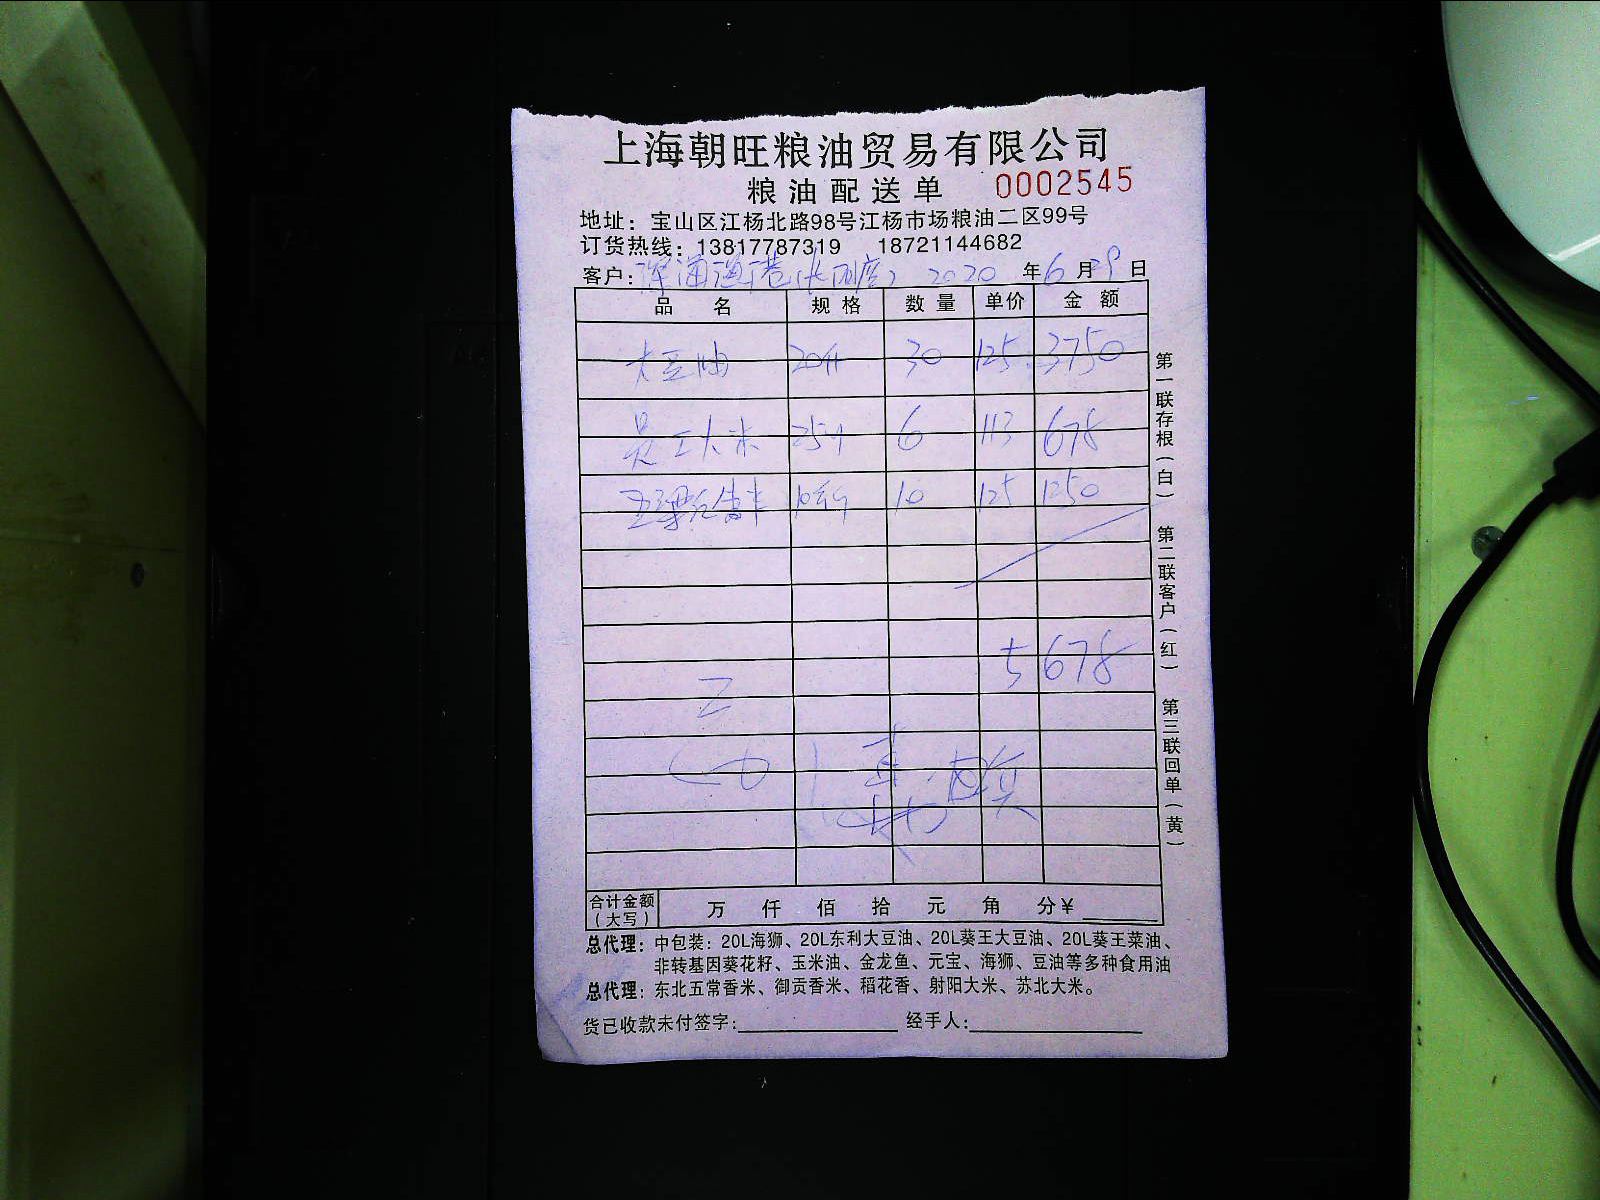 上海朝旺粮油贸易有限公司
粮油配送单 0002545
地址：宝山区江杨北路98号江杨市场粮油二区99号
订货热线：13817787319 18721144682
客户： 2020 年 6 月 29 日
品名 规格 数量 单价 金额
大豆油 20升 30 125 3750
员工大米 25 6 113 678
10斤 10 125 1250
5678
合计金额（大写） 万 仟 佰 拾 元 角 分￥
总代理：中包装：20L海狮、20L东利大豆油、20L葵王大豆油、20L葵王菜油、
非转基因葵花籽、玉米油、金龙鱼、元宝、海狮、豆油等多种食用油
总代理：东北五常香米、御贡香米、稻花香、射阳大米、苏北大米。
货已收款未付签字： 经手人：
第一联存根（白）
第二联客户（红）
第三联回单（黄）